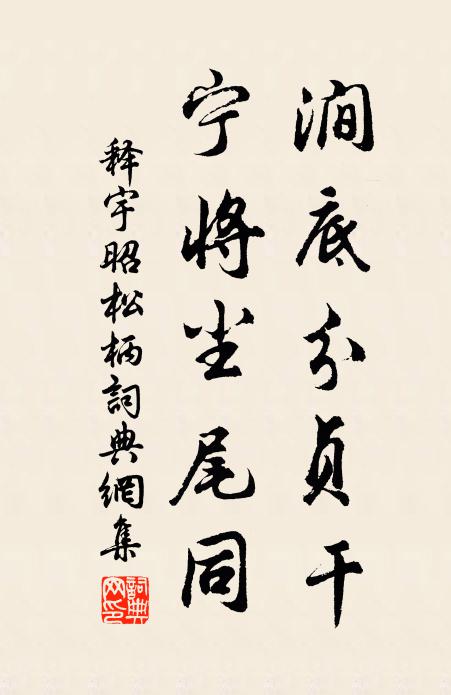 涧底分贞干
宁将尘尾同
释宇昭松柄詞典網集
詞典网印